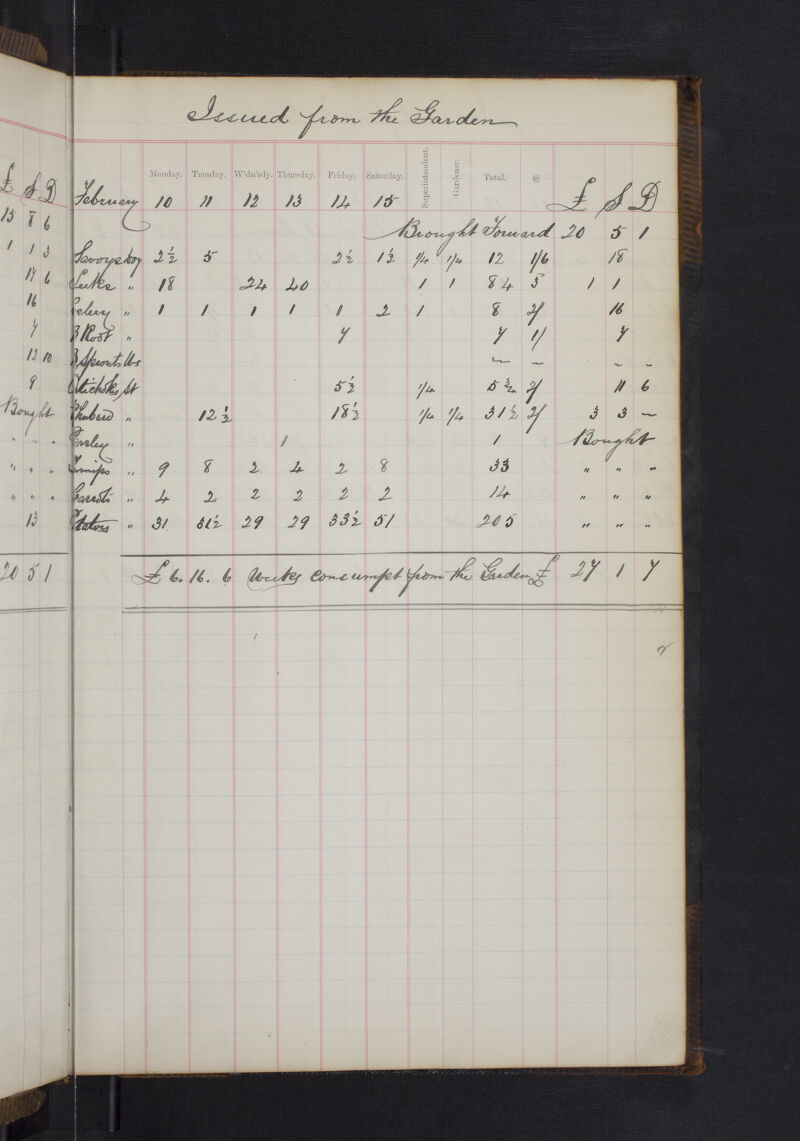 £ S D
15 8 6
1 1 3
17 6
16
7
12 10
9
Bought
" " "
" " "
" " "
13
20 5 1
Issued from the Garden
Monday. Tuesday. W'dn'sdy. Thursday. Friday. Saturday. Superintendent. Gardener. Total. @
February 10 11 12 13 14 15 £ S D
Brought Forward 20 5 1
Savoys Doz 2½ 5 2½ 1½ ¼ ¼ 12 1/6 18
Leeks " 18 24 40 1 1 84 3 1 1
Celery " 1 1 1 1 1 2 1 8 2/ 16
B Root " 7 7 1/ 7
B Sprouts lbs ~ ~ - -
Artichokes St 5½ ¼ 5¾ 2/ 11 6
Rhubard " 12½ 18½ ¼ ¼ 31½ 2/ 3 3 ~
Parsley " 1 1 Bought
Turnips " 9 8 2 4 2 8 33 " " "
Carrots " 4 2 2 2 2 2 14 " " "
Potatoes " 31 31½ 29 29 33½ 51 205 " " "
£6. 16. 6 Weeks consumpt from the Garden £ 27 1 7